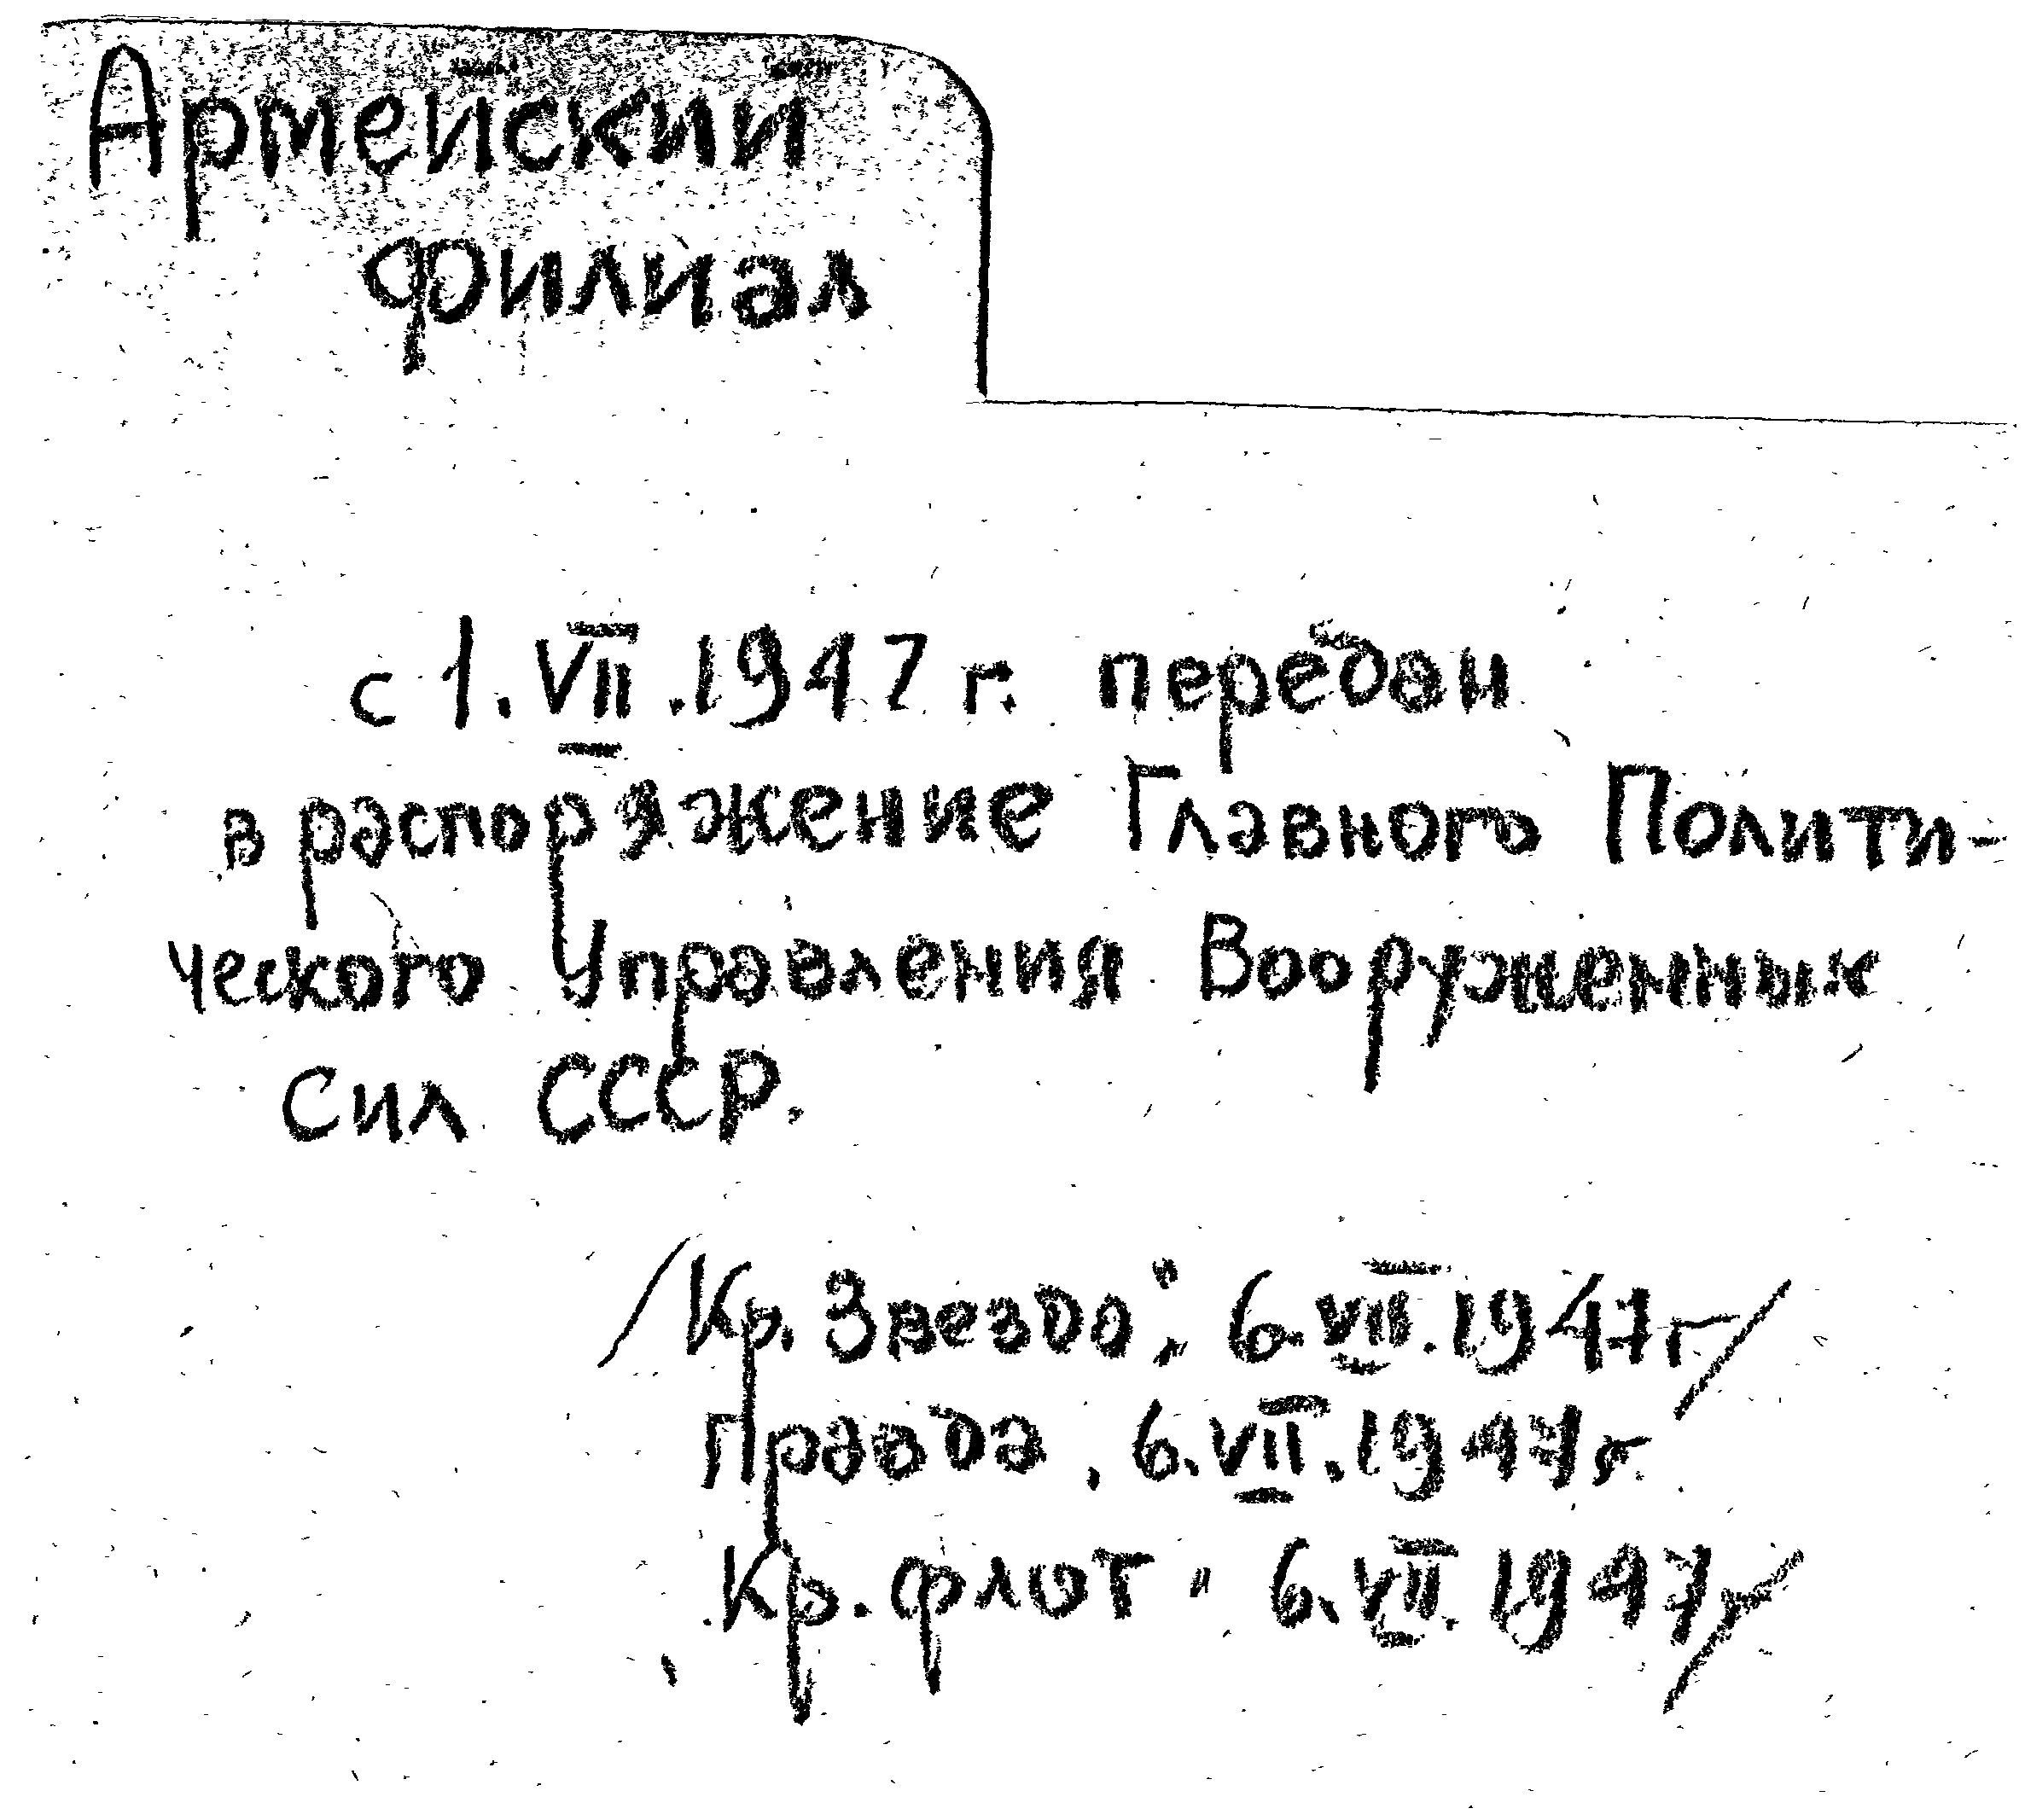 Армейский
филиал
с 1.VII.1947 г. передан
в распоряжение Главного Полити-
ческого Управления Вооруженных
Сил СССР.
/Кр. Звезда", 6.VII.1947г/
Правда, 6.VII.1947г.
Кр. флот" 6.VII.1947/